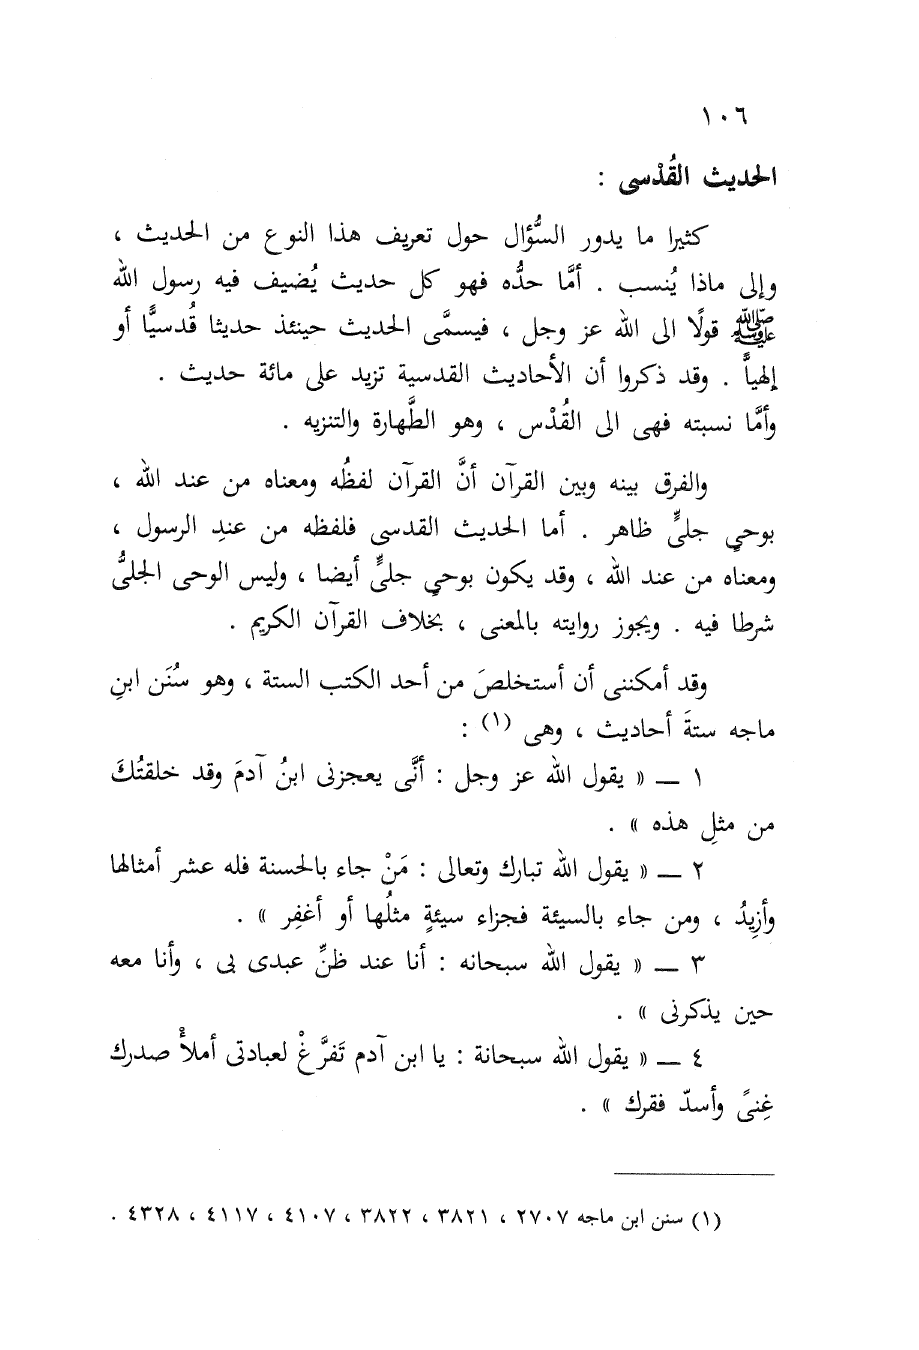 ١٠٦
الحديث القُدْسى :
كثيرا ما يدور السُّؤال حول تعريف هذا النوع من الحديث ،
وإلى ماذا يُنسب . أمَّا حدُّه فهو كل حديث يُضيف فيه رسول الله
ﷺ قولًا الى الله عز وجل ، فيسمَّى الحديث حينئذ حديثا قُدسيًّا أو
إلهياً . وقد ذكروا أن الأحاديث القدسية تزيد على مائة حديث .
وأمَّا نسبته فهى الى القُدْس ، وهو الطَّهارة والتنزيه .
والفرق بينه وبين القرآن أنَّ القرآن لفظُه ومعناه من عند الله ،
بوحىٍ جلىٍّ ظاهر . أما الحديث القدسى فلفظه من عندِ الرسول ،
ومعناه من عند الله ، وقد يكون بوحىٍ جلىٍّ أيضا ، وليس الوحى الجلىُّ
شرطا فيه . ويجوز روايته بالمعنى ، بخلاف القرآن الكريم .
وقد أمكننى أن أستخلصَ من أحد الكتب الستة ، وهو سُنَن ابنِ
ماجه ستةَ أحاديث ، وهى (١) :
١ — « يقول الله عز وجل : أنَّى يعجزنى ابنُ آدمَ وقد خلقتُكَ
من مثلِ هذه » .
٢ — « يقول الله تبارك وتعالى : مَنْ جاء بالحسنة فله عشر أمثالها
وأزيدُ ، ومن جاء بالسيئة فجزاء سيئةٍ مثلُها أو أغفِر » .
٣ — « يقول الله سبحانه : أنا عند ظنِّ عبدى بى ، وأنا معه
حين يذكرنى » .
٤ — « يقول الله سبحانة : يا ابن آدم تَفرَّغْ لعبادتى أملأْ صدرك
غِنىً وأسدّ فقرك » .
(١) سنن ابن ماجه ٢٧٠٧ ، ٣٨٢١ ، ٣٨٢٢ ، ٤١٠٧ ، ٤١١٧ ، ٤٣٢٨ .